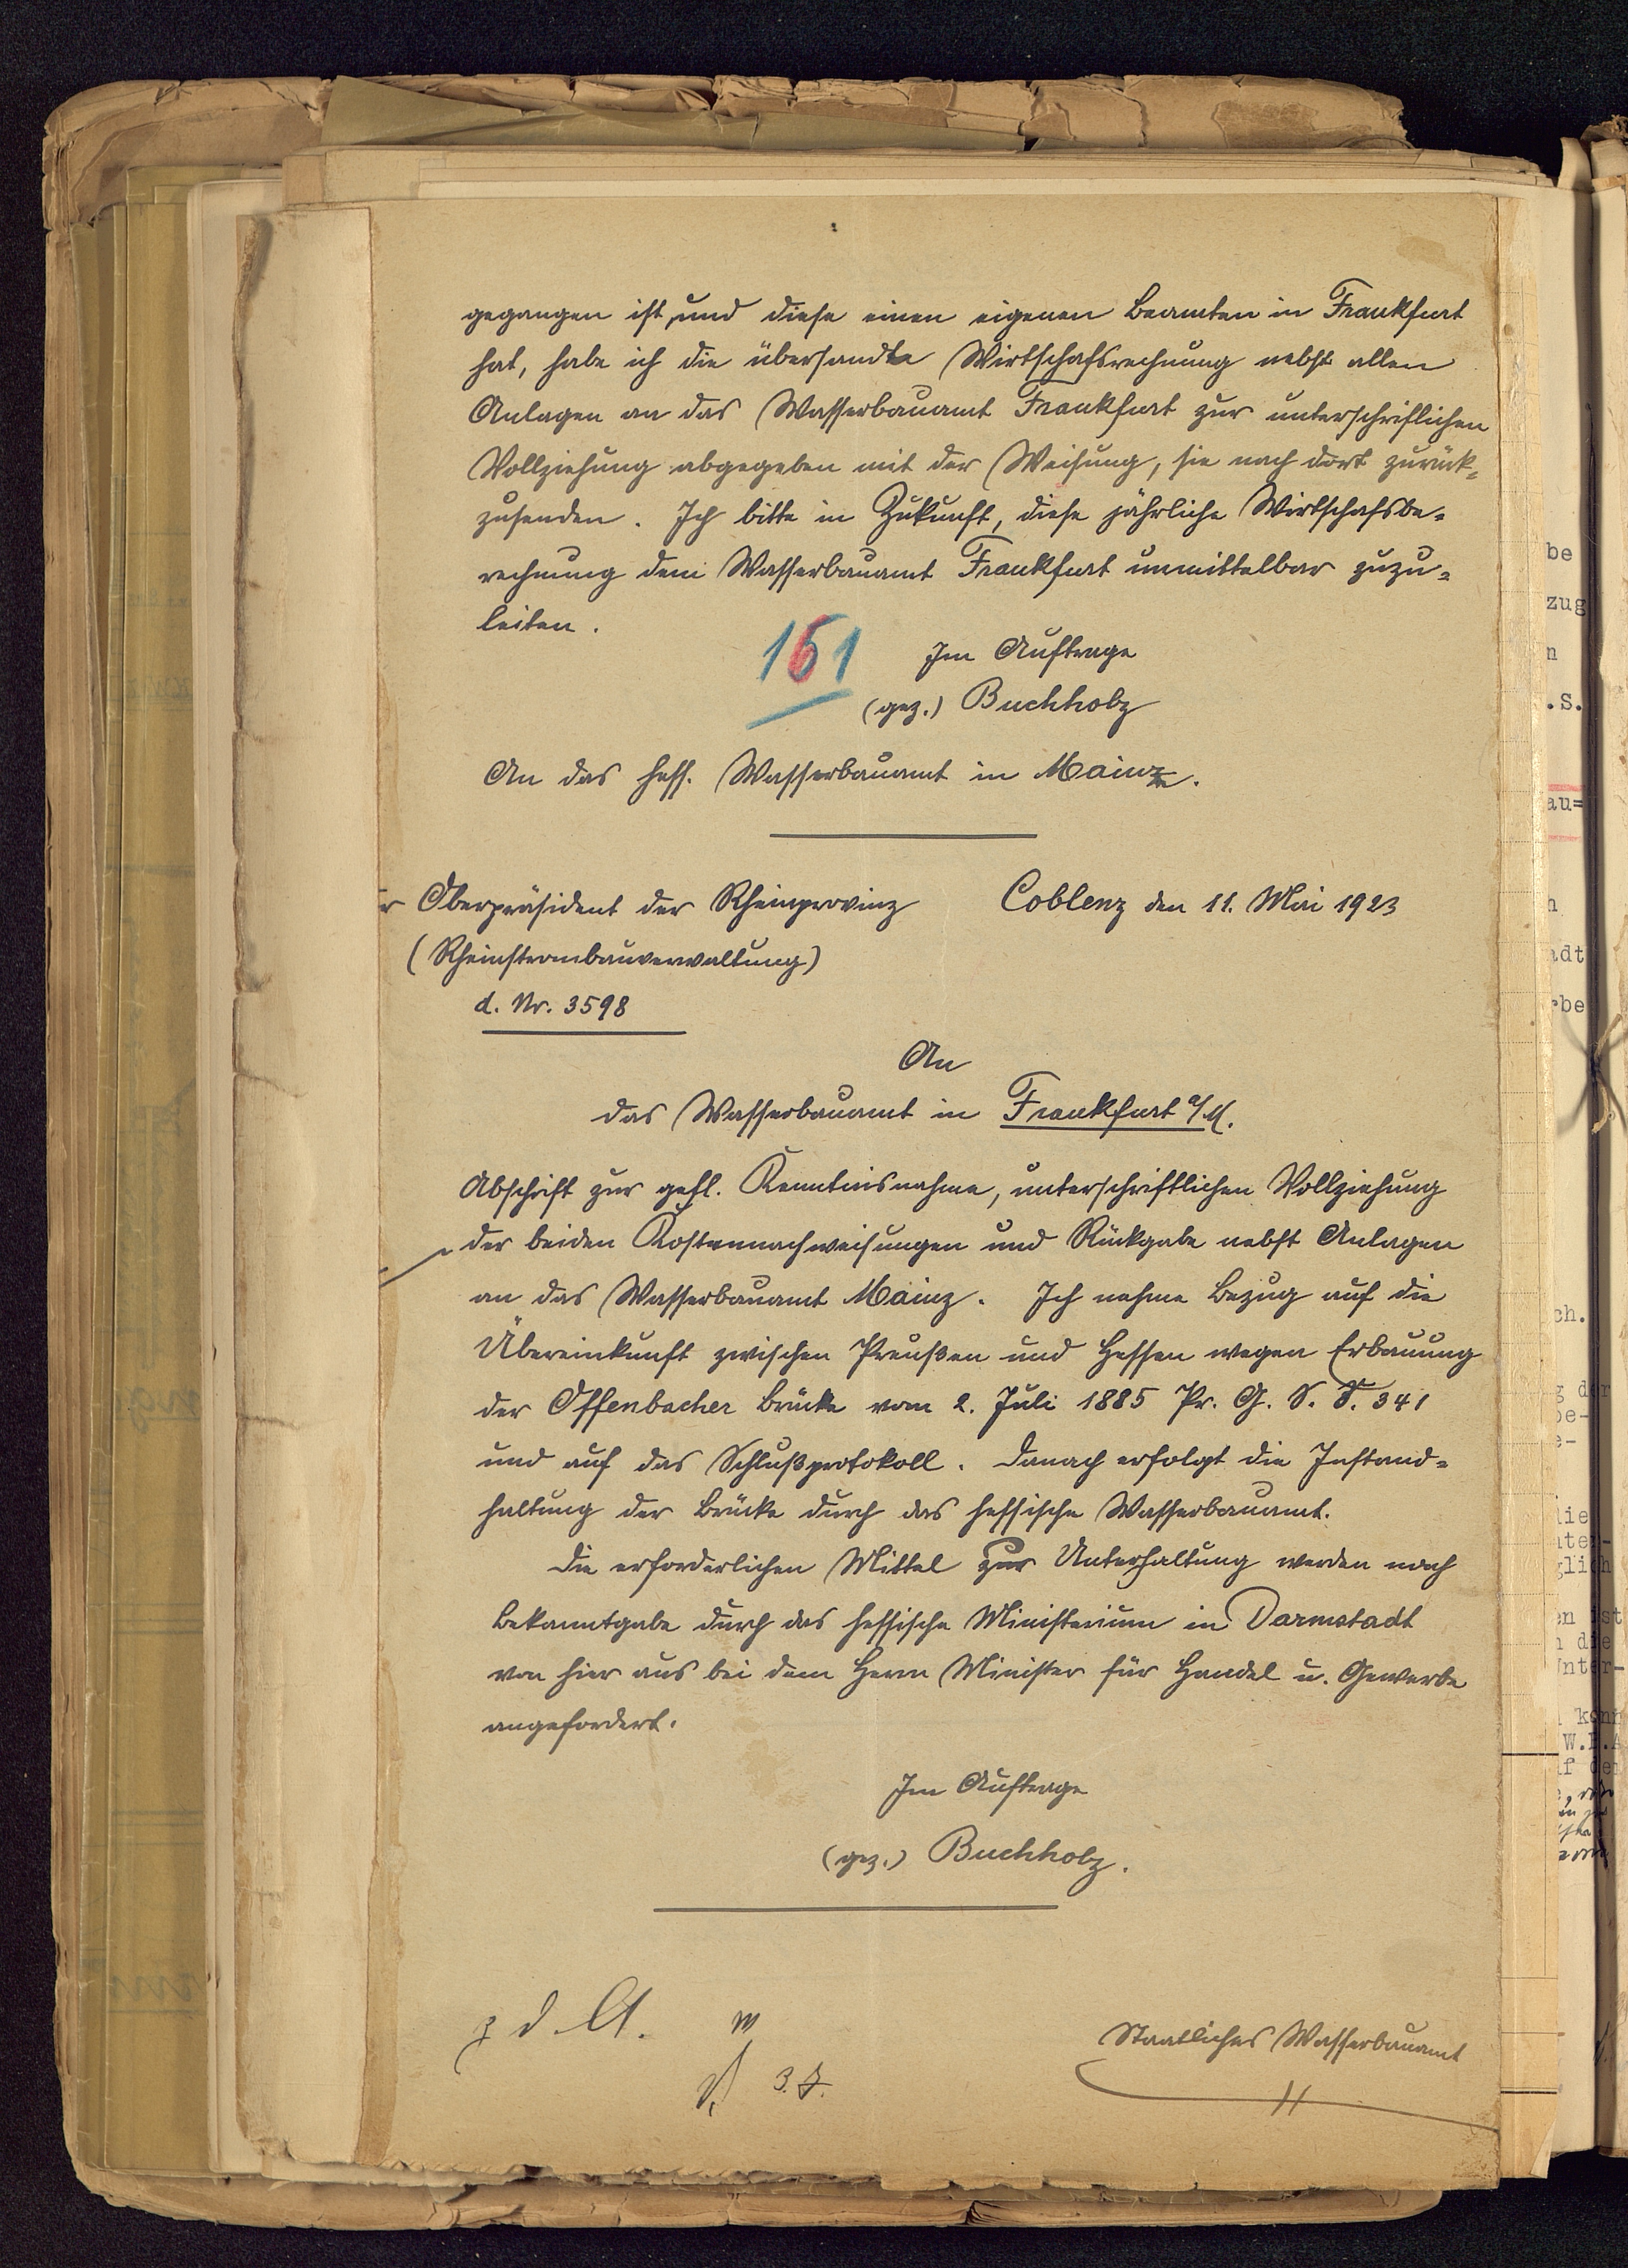 gegangen ist, und diese einen eigenen Beamten in Frankfurt
hat, habe ich die übersandte Wirtschafsrechnung nebst allen
Anlagen an das Wasserbauamt Frankfurt zur unterschriflichen
Vollziehung abgegeben mit der Weisung, sie nach dort zurück=
zusenden. Ich bitte in Zukunft, diese jährliche Wirtschafsbe=
rechnung dem Wasserbauamt Frankfurt unmittelbar zuzu=
leiten.
161
Im Auftrage
(gez.) Buchholz
An das hess. Wasserbauamt in Mainz.
r Oberpräsident der Rheinprovinz
Coblenz den 11. Mai 1923
(Rheinstrombauverwaltung)
d. Nr. 3598
An
das Wasserbauamt in Frankfurt a/M.
Abschrift zur gefl. Kenntnisnahme, unterschriftlichen Vollziehung
der beiden Kostennachweisungen und Rückgabe nebst Anlagen
an das Wasserbauamt Mainz. Ich nehme Bezug auf die
Übereinkunft zwischen Preußen und Hessen wegen Erbauung
der Offenbacher Brücke vom 2. Juli 1885 Pr. G. S. S. 341
und auf das Schlußprotokoll. Danach erfolgt die Instand=
haltung der Brücke durch das hessische Wasserbauamt.
Die erforderlichen Mittel zur Unterhaltung werden nach
Bekanntgabe durch das hessische Ministerium in Darmstadt
von hier aus bei dem Herrn Minister für Handel u. Gewerbe
angefordert.
Im Auftrage
(gez.) Buchholz.
z d. A.
3. 7.
Staatliches Wasserbauamt
be
zug
n
.S.
au=
adt
rbe
ch.